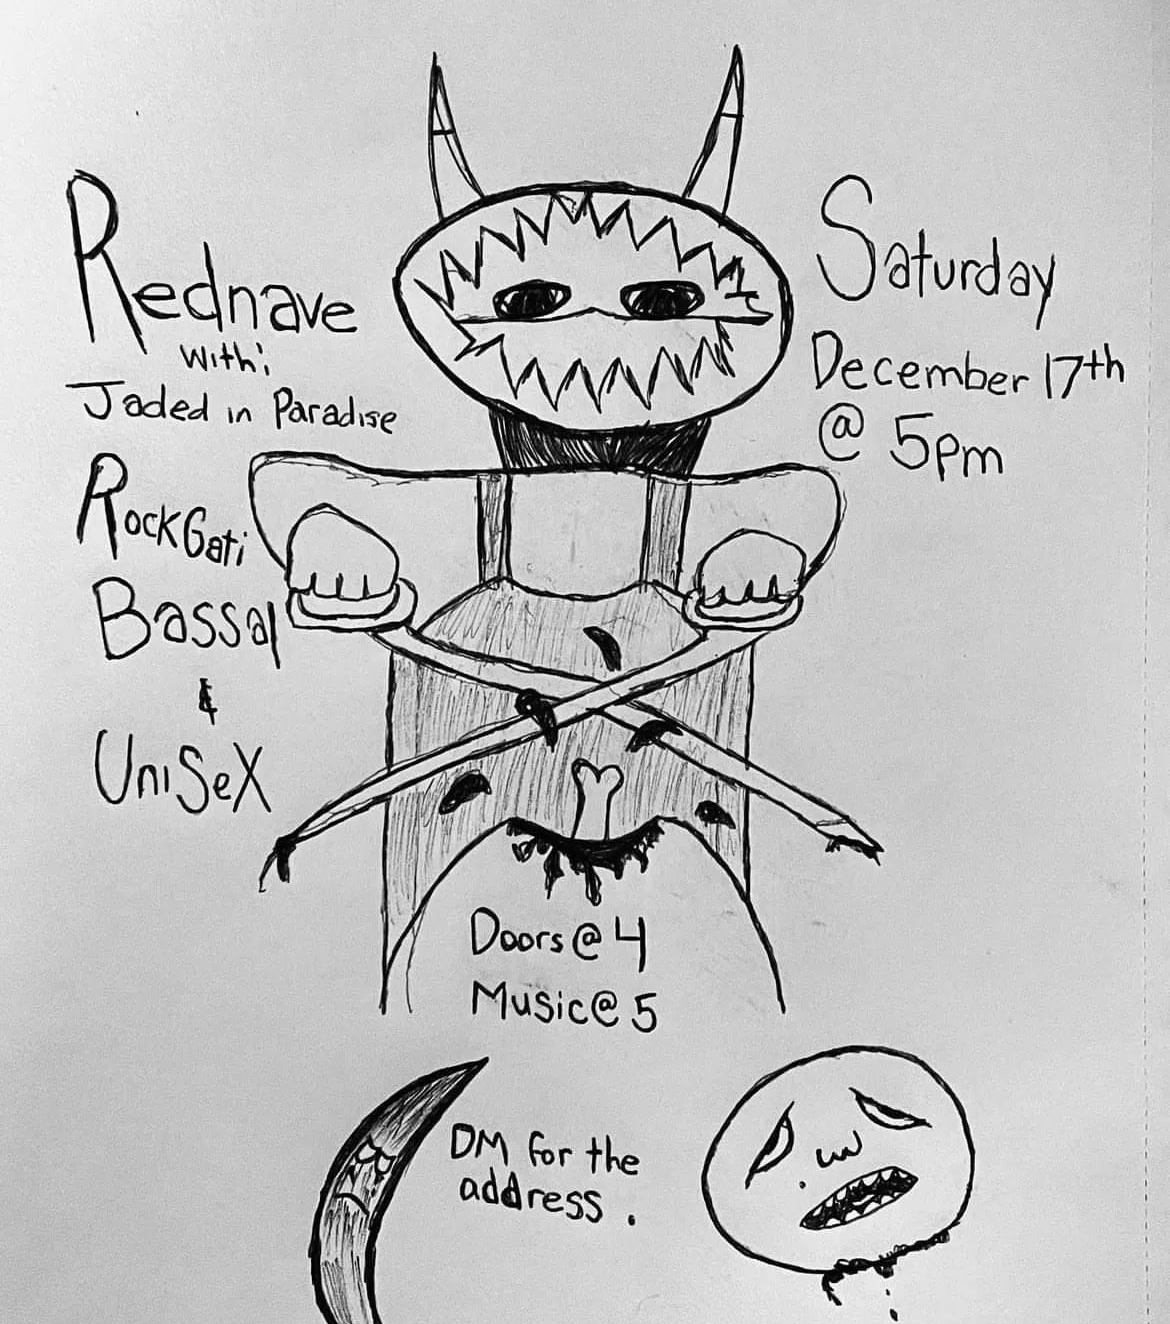 Rednave
with:
Jaded in Paradise
RockGati
Bassal
&
UniSeX
Saturday
December 17th
@ 5pm
Doors @ 4
Music @ 5
DM for the
address.